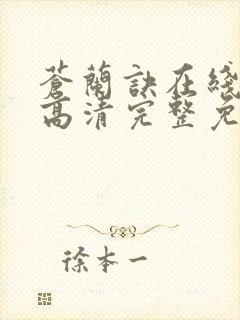 蒼蘭訣在綫
高清完整免
徐本一